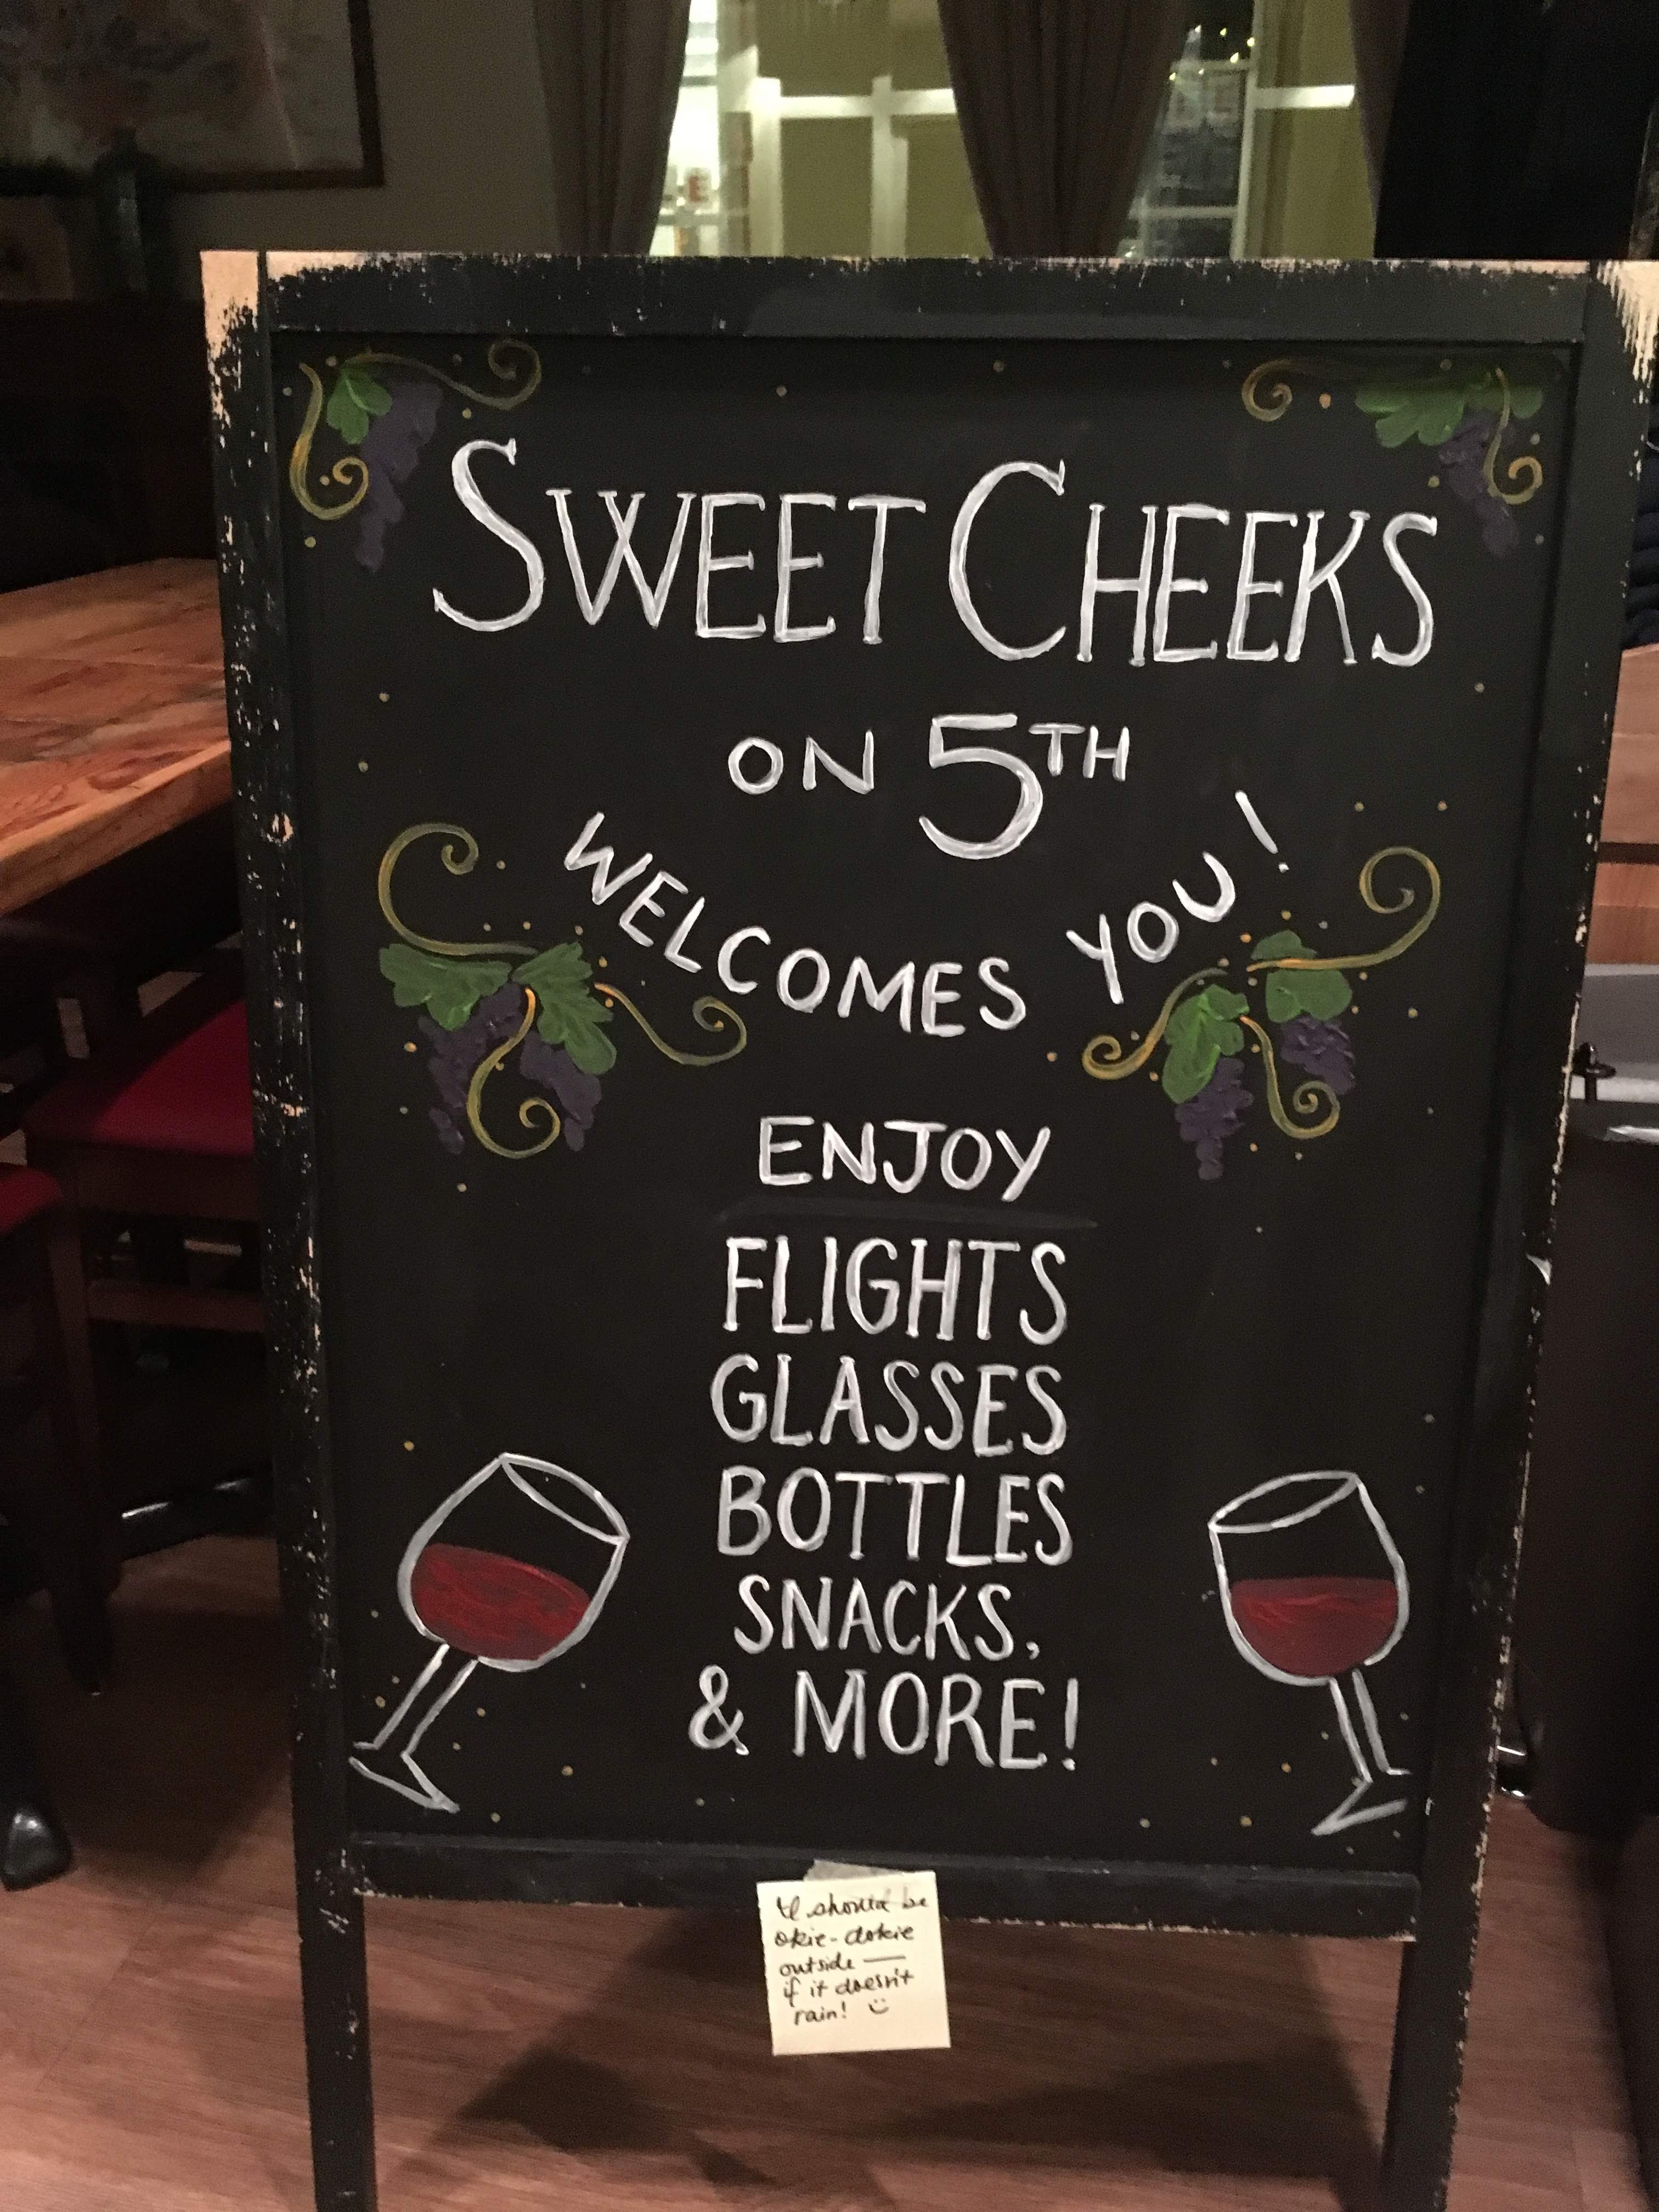 SWEET CHEEKS
ON 5TH
WELCOMES YOU!
ENJOY
FLIGHTS
GLASSES
BOTTLES
SNACKS,
& MORE!
It should be
okie-dokie
outside —
if it doesn't
rain! :)